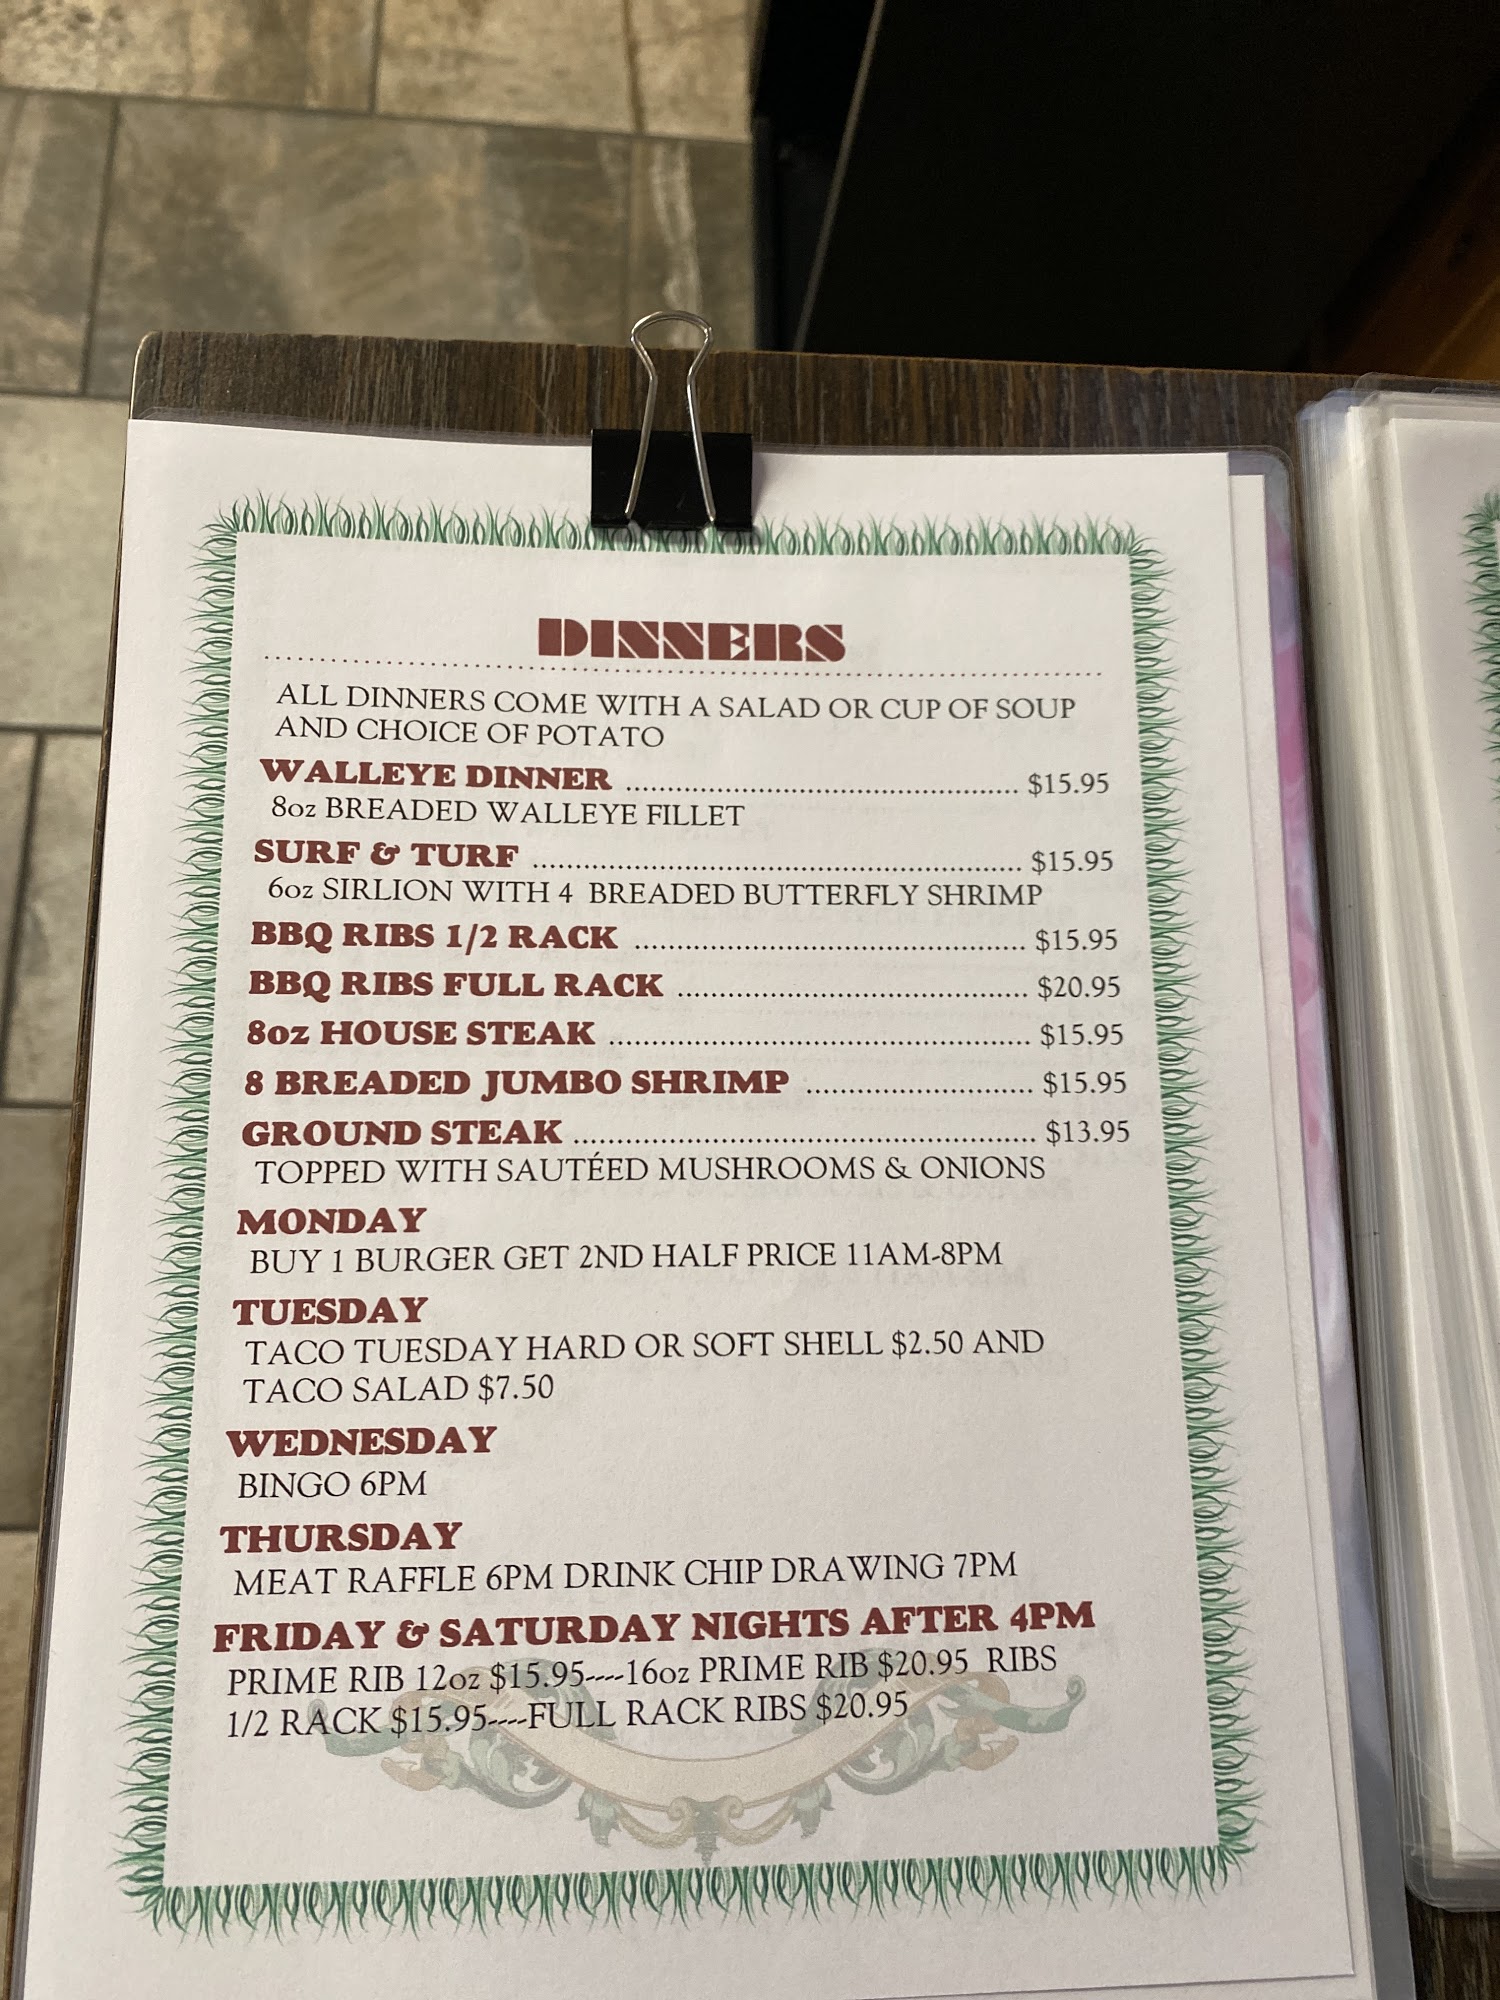 DINNERS
ALL DINNERS COME WITH A SALAD OR CUP OF SOUP
AND CHOICE OF POTATO
WALLEYE DINNER ............................................. $15.95
8oz BREADED WALLEYE FILLET
SURF & TURF ........................................................ $15.95
6oz SIRLION WITH 4 BREADED BUTTERFLY SHRIMP
BBQ RIBS 1/2 RACK ............................................. $15.95
BBQ RIBS FULL RACK ........................................ $20.95
8oz HOUSE STEAK ................................................ $15.95
8 BREADED JUMBO SHRIMP .......................... $15.95
GROUND STEAK ..................................................... $13.95
TOPPED WITH SAUTÉED MUSHROOMS & ONIONS
MONDAY
BUY 1 BURGER GET 2ND HALF PRICE 11AM-8PM
TUESDAY
TACO TUESDAY HARD OR SOFT SHELL $2.50 AND
TACO SALAD $7.50
WEDNESDAY
BINGO 6PM
THURSDAY
MEAT RAFFLE 6PM DRINK CHIP DRAWING 7PM
FRIDAY & SATURDAY NIGHTS AFTER 4PM
PRIME RIB 12oz $15.95----16oz PRIME RIB $20.95 RIBS
1/2 RACK $15.95----FULL RACK RIBS $20.95